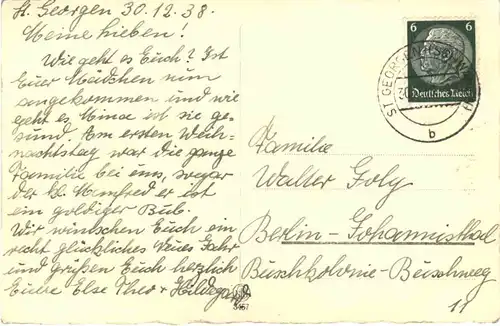 St. Georgen 30.12.38.
Meine Lieben!
Wie geht es Euch? Ist
Euer Mädchen nun
angekommen und wie
geht es, Mina ist sie ge-
sund. Am ersten Weih-
nachtstag war die ganze
Familie bei uns, sogar
der kl. Manfred er ist
ein goldiger Bub.
Wir wünschen Euch ein
recht glückliches Neues Jahr
und grüßen Euch herzlich
Eure Else Theo + Hildegard
6 6
Deutsches Reich
ST GEORGEN (SCHWARZW)
b
Familie
Walter Foly
Berlin-Johannisthal
Buschkolonie-Buschweg
11